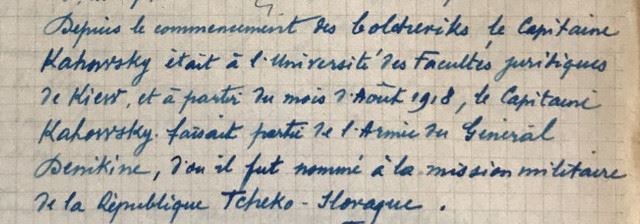 Depuis le commencement des bolcheviks, le Capitaine
Kahowsky était à l'Université des Facultés juridiques
de Kiew, et à partir du mois d'Août 1918, le Capitaine
Kahowsky faisait partie de l'Armée du Général
Denikine, d'ou il fut nommé à la mission militaire
de la République Tcheko-Slovaque.